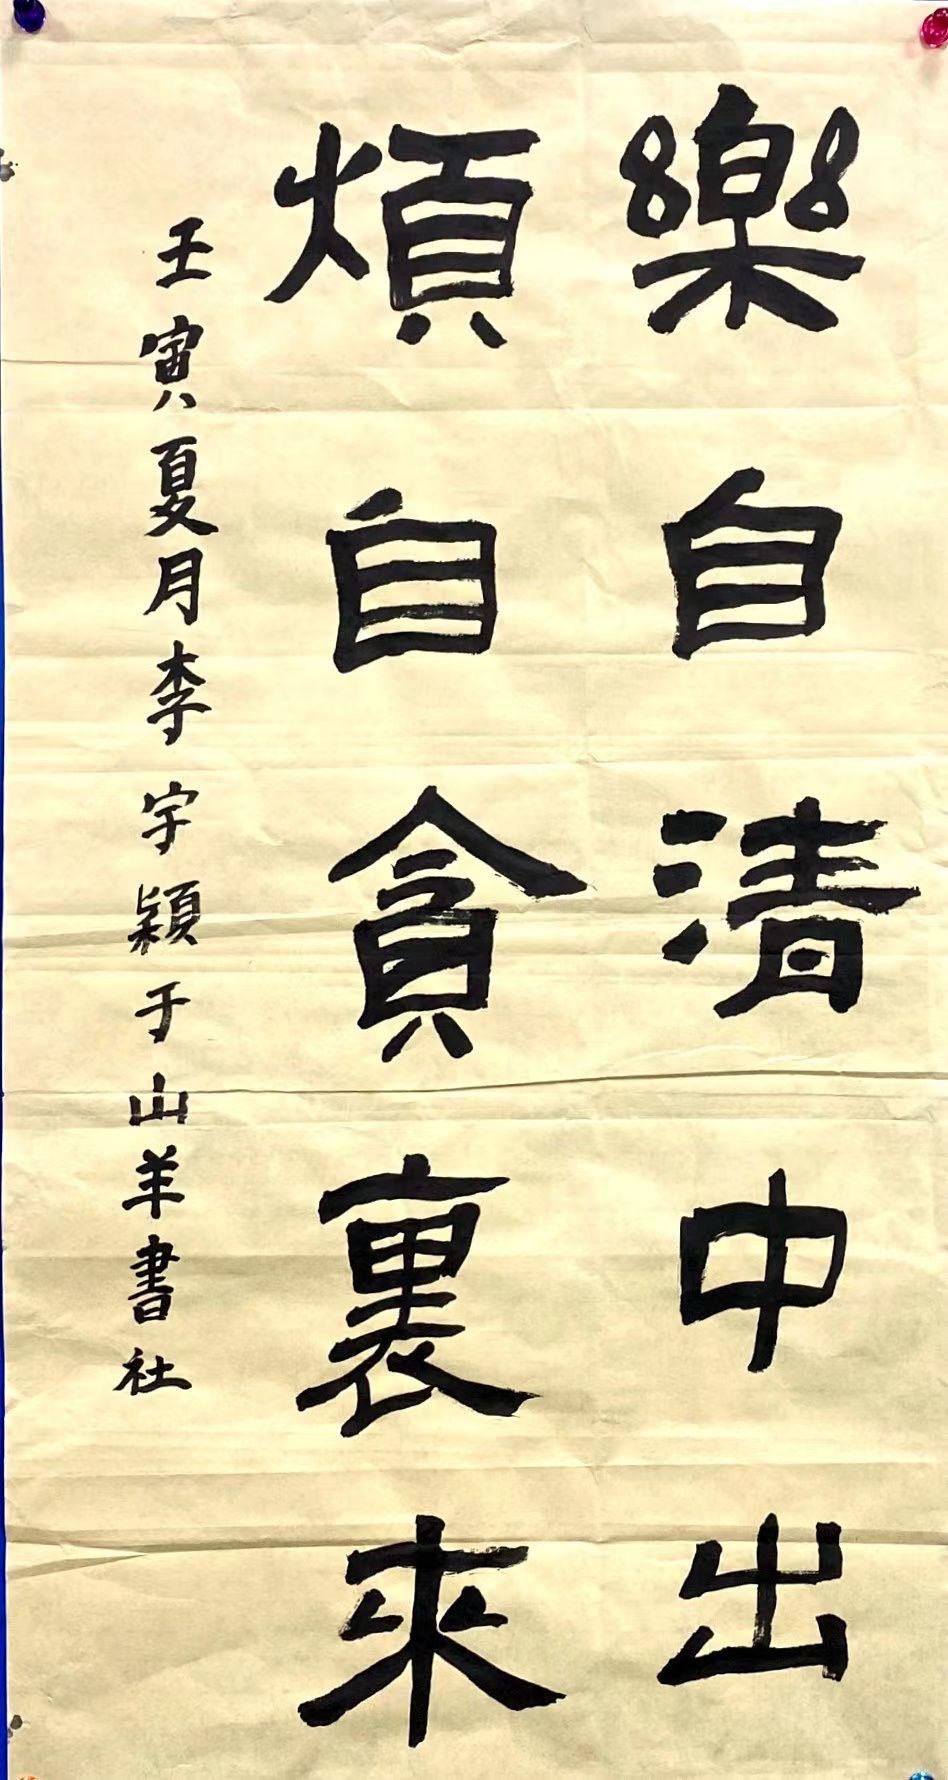 樂自清中出
煩自貪裏來
壬寅夏月李字穎于山羊書社